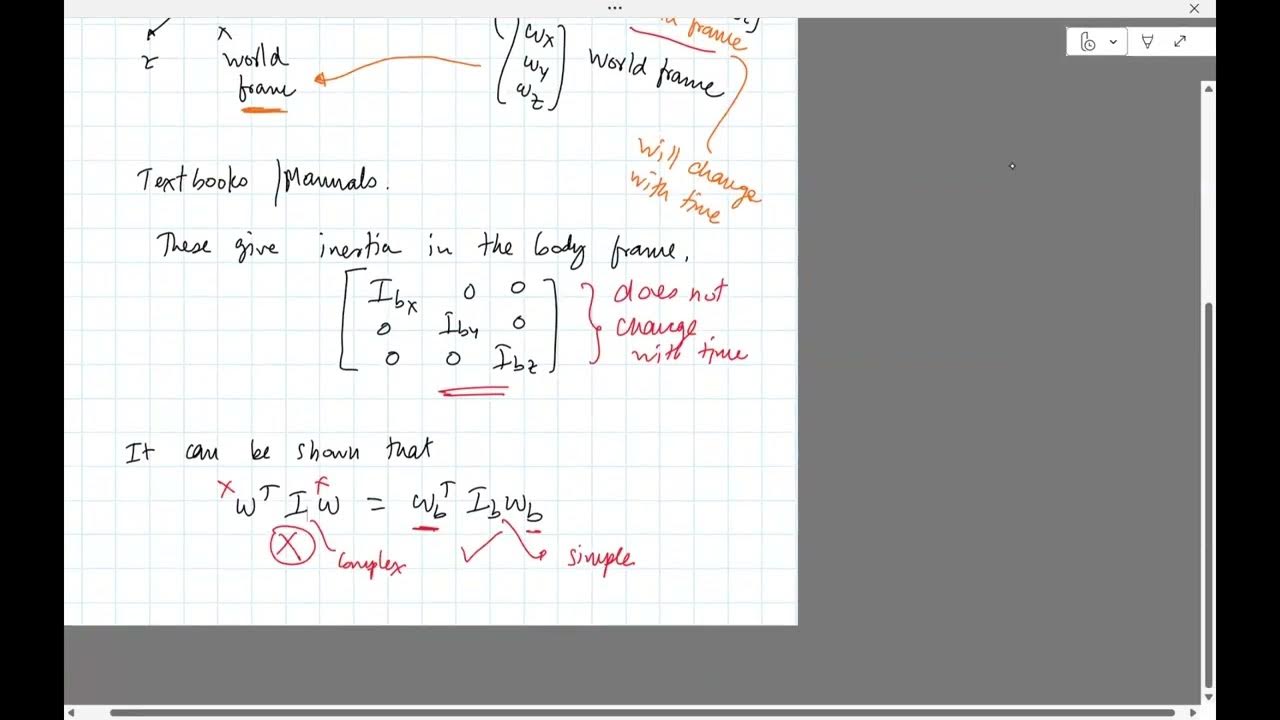 in frame
x
ωx
ωy
ωz
world frame
world
frame
will change
with time
Textbooks / Manuals.
These give inertia in the body frame,
Ibx 0 0
0 Iby 0
0 0 Ibz
does not
change
with time
It can be shown that
ω^T I ω = ωb^T Ib ωb
X complex
✓ simple